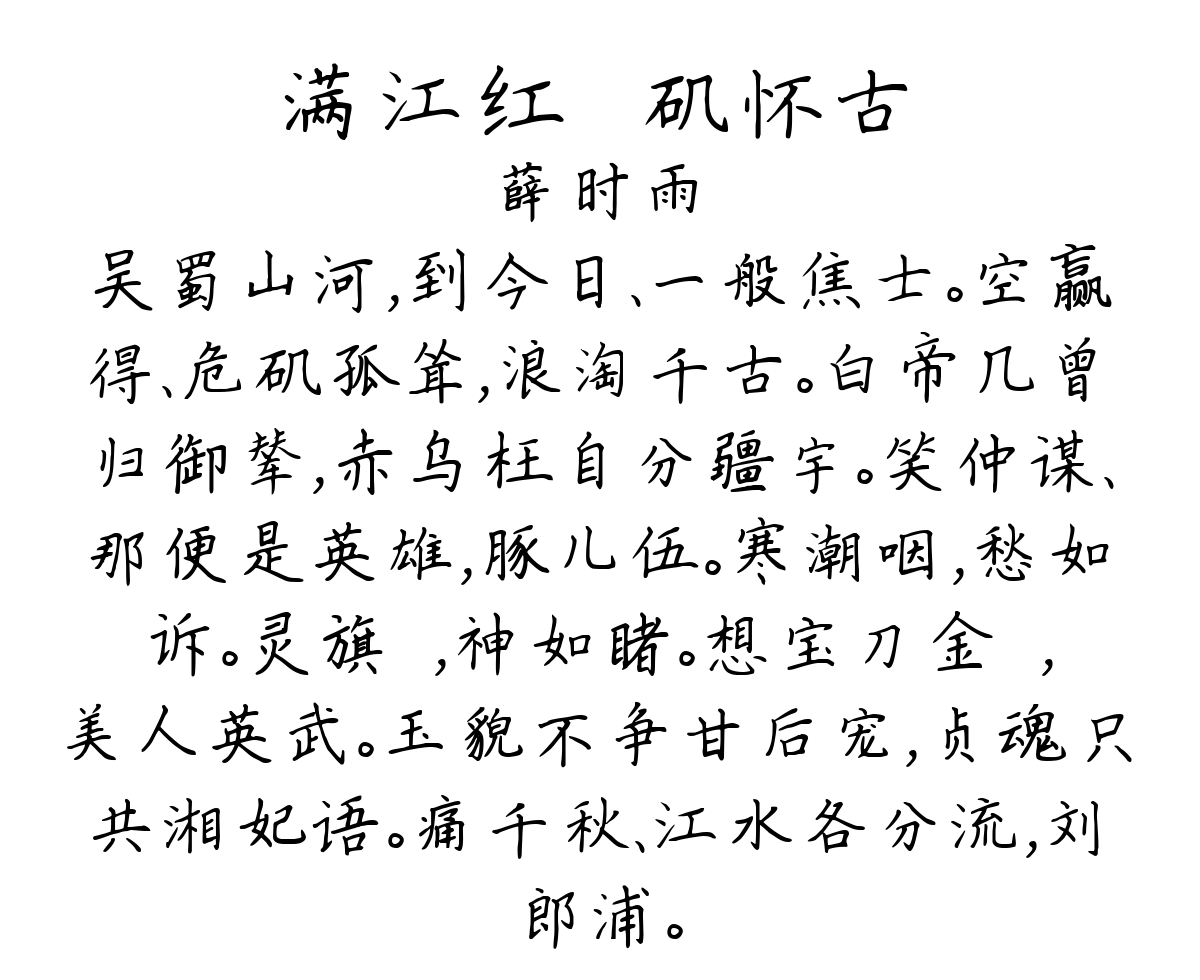 满江红 矶怀古
薛时雨
吴蜀山河,到今日、一般焦士。空赢
得、危矶孤耸,浪淘千古。白帝几曾
归御辇,赤乌枉自分疆宇。笑仲谋、
那便是英雄,豚儿伍。寒潮咽,愁如
诉。灵旗 ,神如睹。想宝刀金 ,
美人英武。玉貌不争甘后宠,贞魂只
共湘妃语。痛千秋、江水各分流,刘
郎浦。